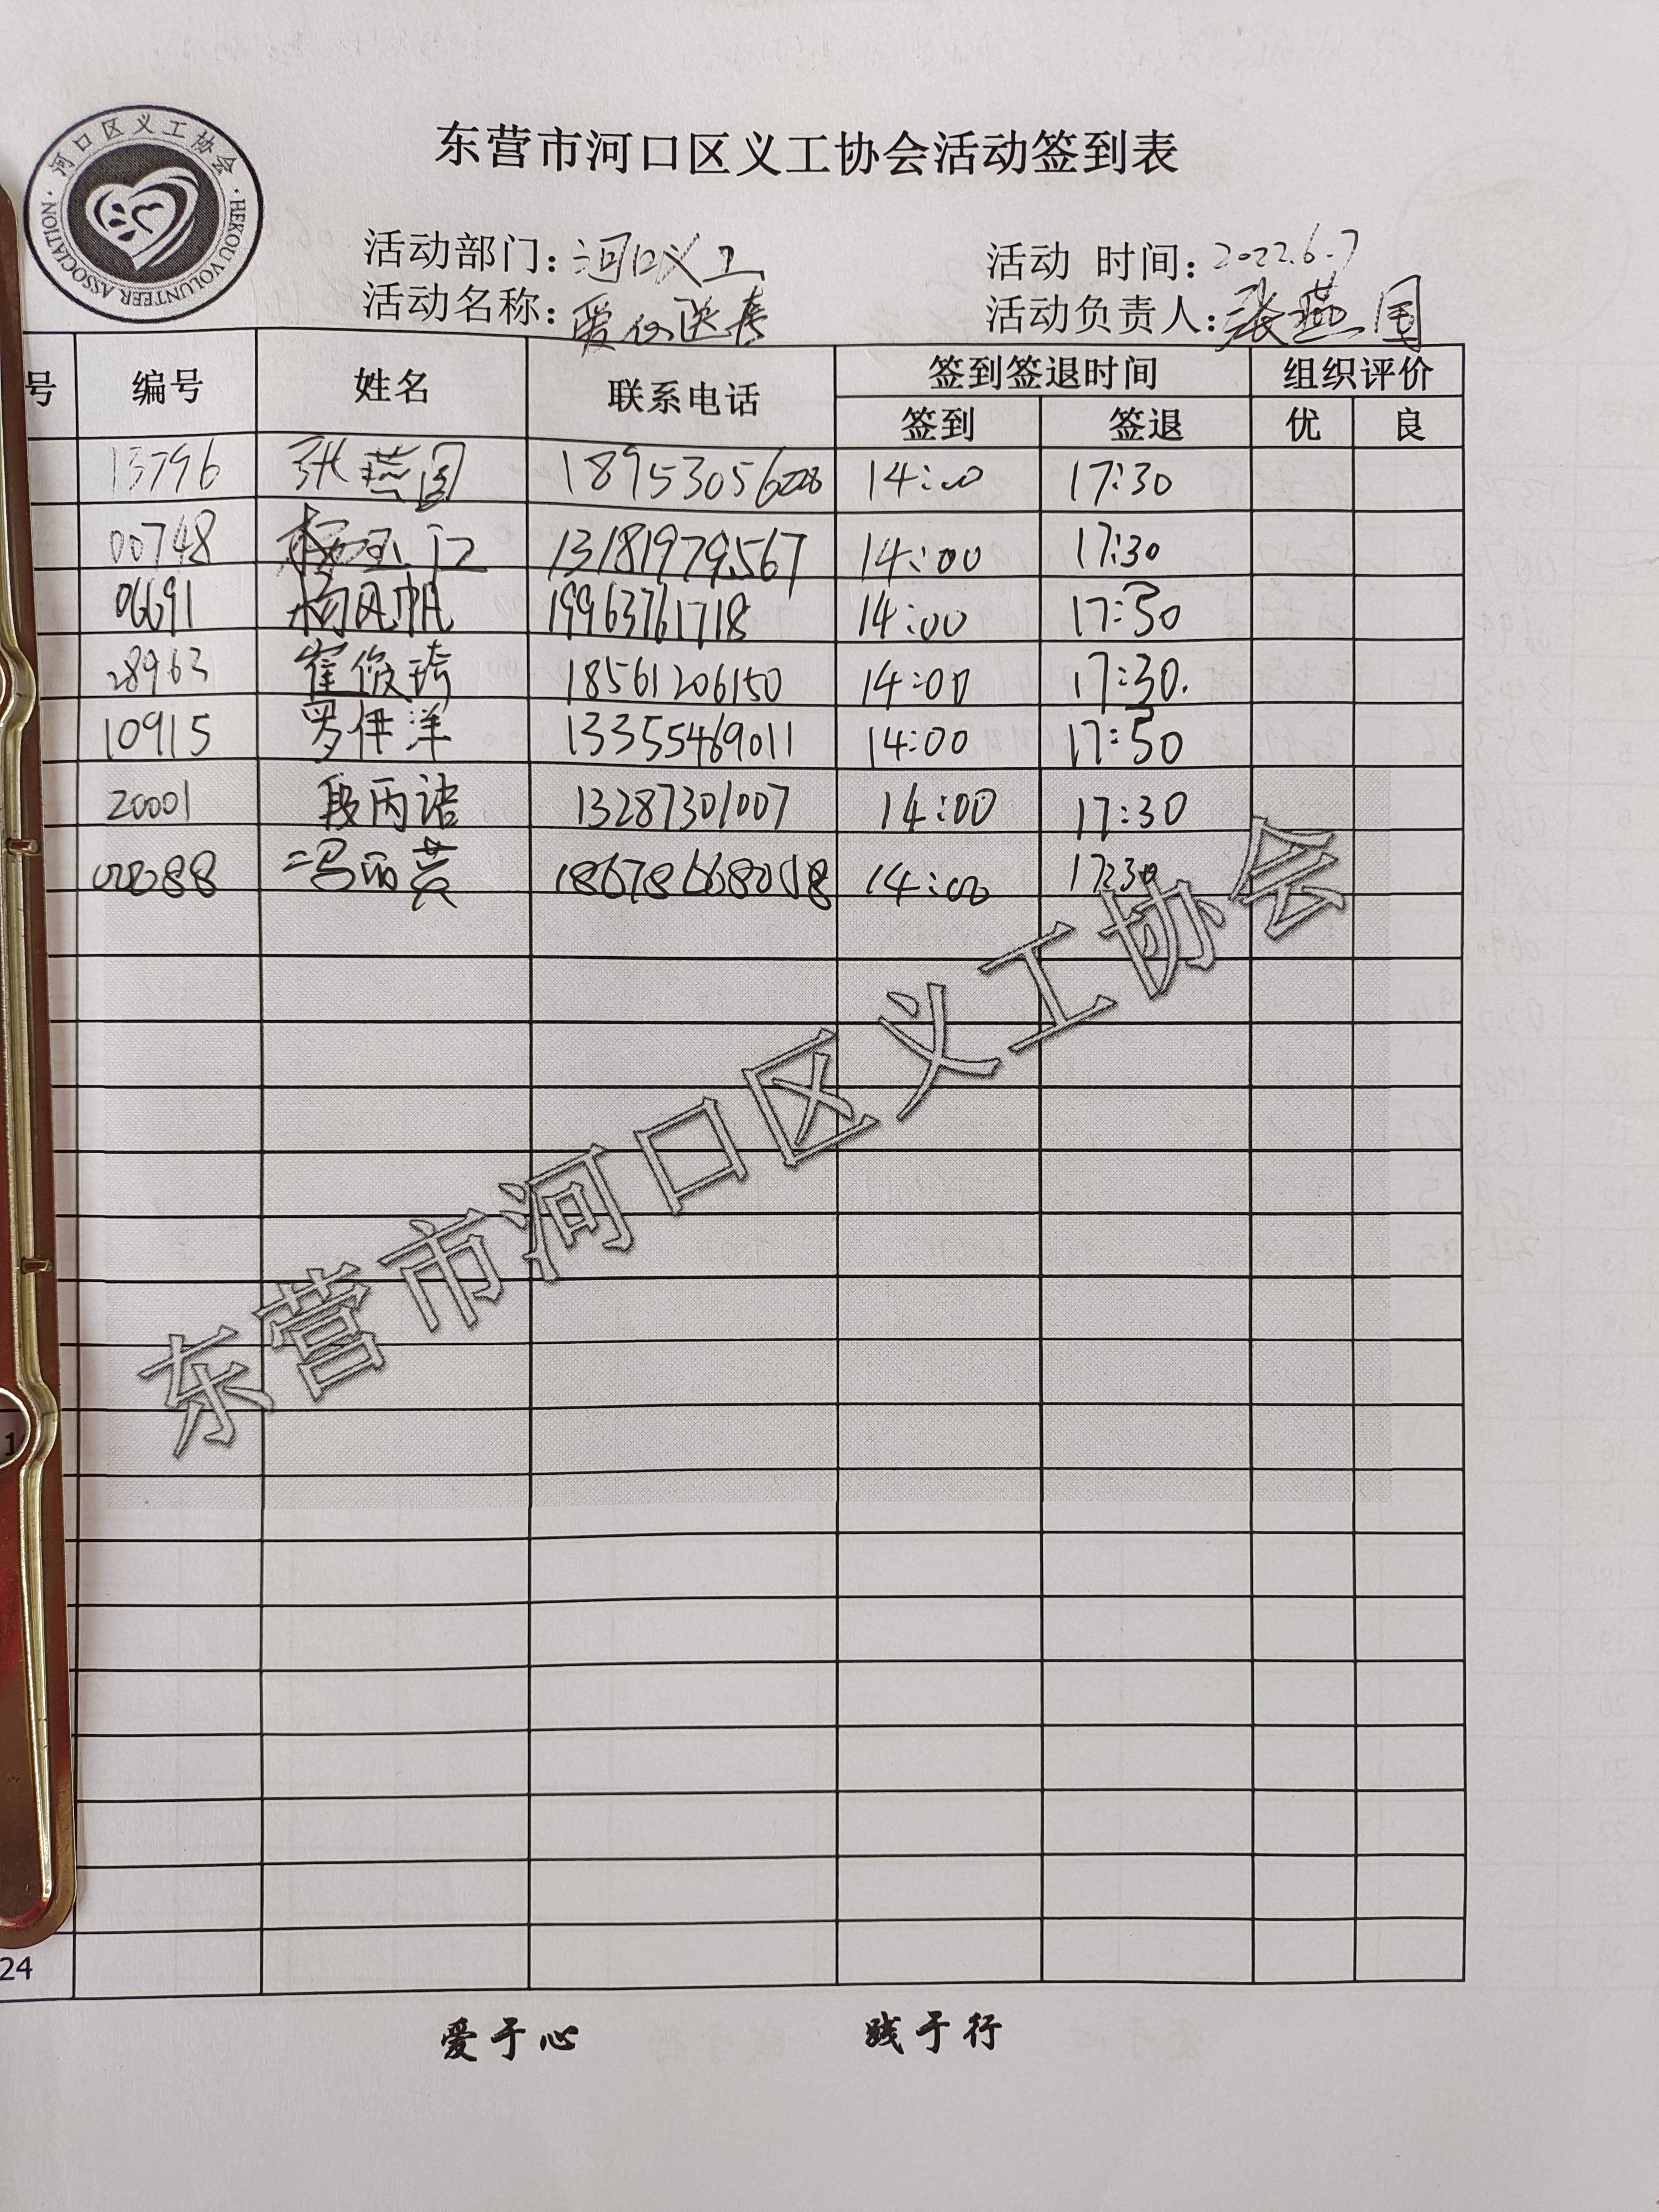 东营市河口区义工协会活动签到表
河口区义工协会
HEKOU VOLUNTEER ASSOCIATION
活动部门：河口义工 活动 时间：2022.6.7
活动名称：爱心送考 活动负责人：张燕国
号 编号 姓名 联系电话 签到签退时间 组织评价
签到 签退 优 良
13796 张燕国 18953056028 14:00 17:30
00748 杨玉江 13181979567 14:00 17:30
06691 杨风帆 19963761718 14:00 17:30
28963 崔俊琦 18561206150 14:00 17:30.
10915 罗伊洋 13355469011 14:00 17:30
20001 段丙诺 13287301007 14:00 17:30
冯丽英 14:00 17:30
东营市河口区义工协会
1
24
爱于心 践于行